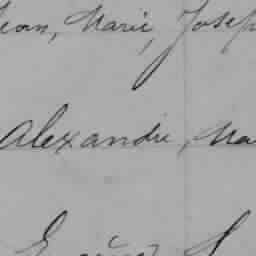 Jean, Marie, Joseph
Alexandre, Ma